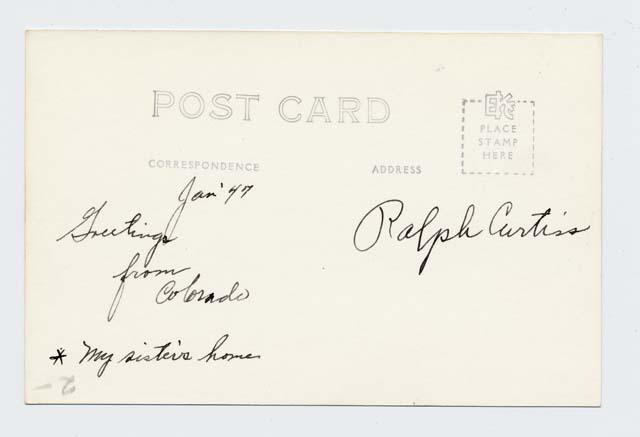 POST CARD
EKC
PLACE
STAMP
HERE
CORRESPONDENCE
ADDRESS
Jan '47
Greetings
from
Colorado
Ralph Curtiss
* My sister's home
2-